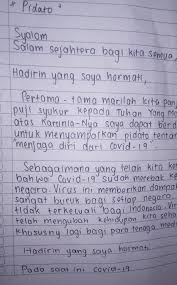 * Pidato *
Syalom
Salam sejahtera bagi kita semua,
Hadirin yang saya hormati,
Pertama-tama marilah kita pan
puji syukur kepada Tuhan Yang M
atas karunia-Nya saya dapat berd
untuk menyampaikan pidato tentan
"menjaga diri dari Covid-19"
Sebagaimana yang telah kita ket
bahwa Covid-19 sudah merebak ke
negara. Virus ini memberikan dampak
sangat buruk bagi setiap negara,
tidak terkecuali bagi Indonesia. Vir
telah mengubah kehidupan kita seha
khususnya lagi bagi para tenaga med
Hadirin yang saya hormati
Pada saat ini Covid-19